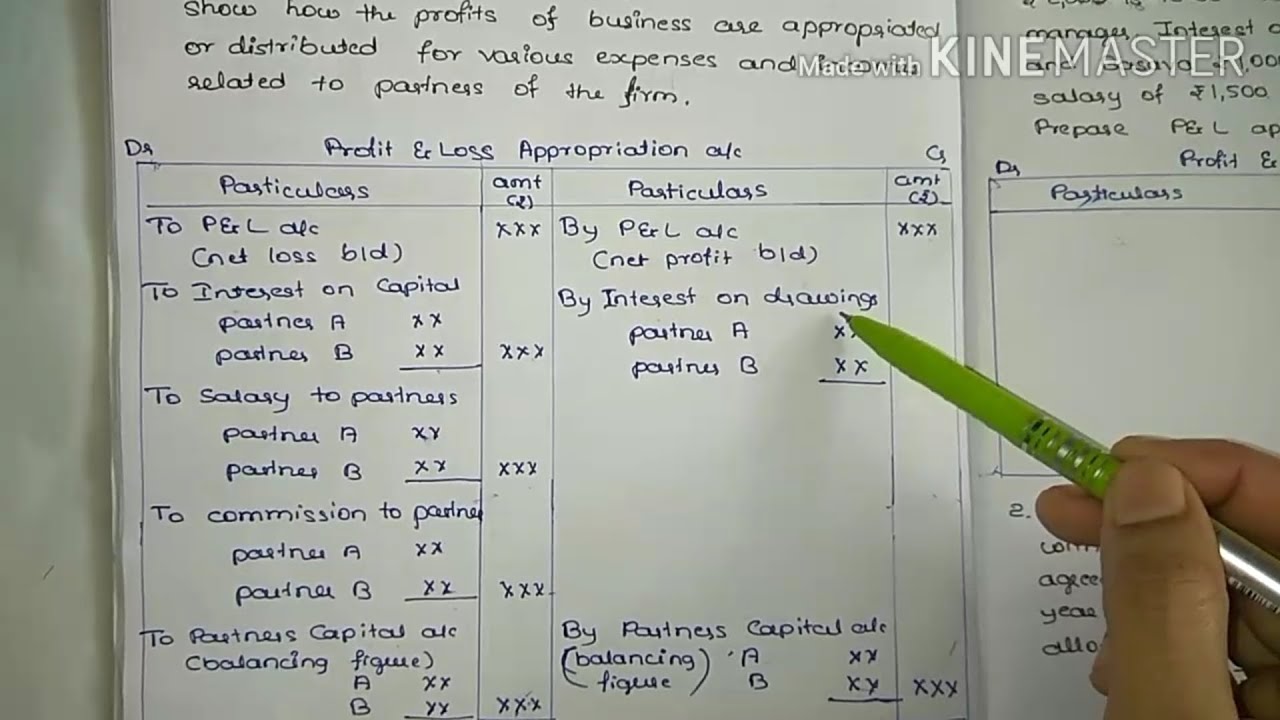 show how the profits of business are appropriated
or distributed for various expenses and
related to partners of the firm.
Made with KINEMASTER
Dr Profit & Loss Appropriation a/c Cr
Particulars amt (₹) Particulars amt (₹)
To P&L a/c xxx By P&L a/c xxx
(net loss b/d) (net profit b/d)
To Interest on Capital By Interest on drawings
partner A xx partner A x
partner B xx xxx partner B xx
To Salary to partners
partner A xx
partner B xx xxx
To commission to partner
partner A xx
partner B xx xxx
To Partners Capital a/c By Partners Capital a/c
(balancing figure) (balancing figure) A xx
A xx B xx xxx
B xx xxx
manager, Interest
salary of ₹1,500
Prepare P&L ap
Profit &
Dr
Particulars
2.
agree
year
allo